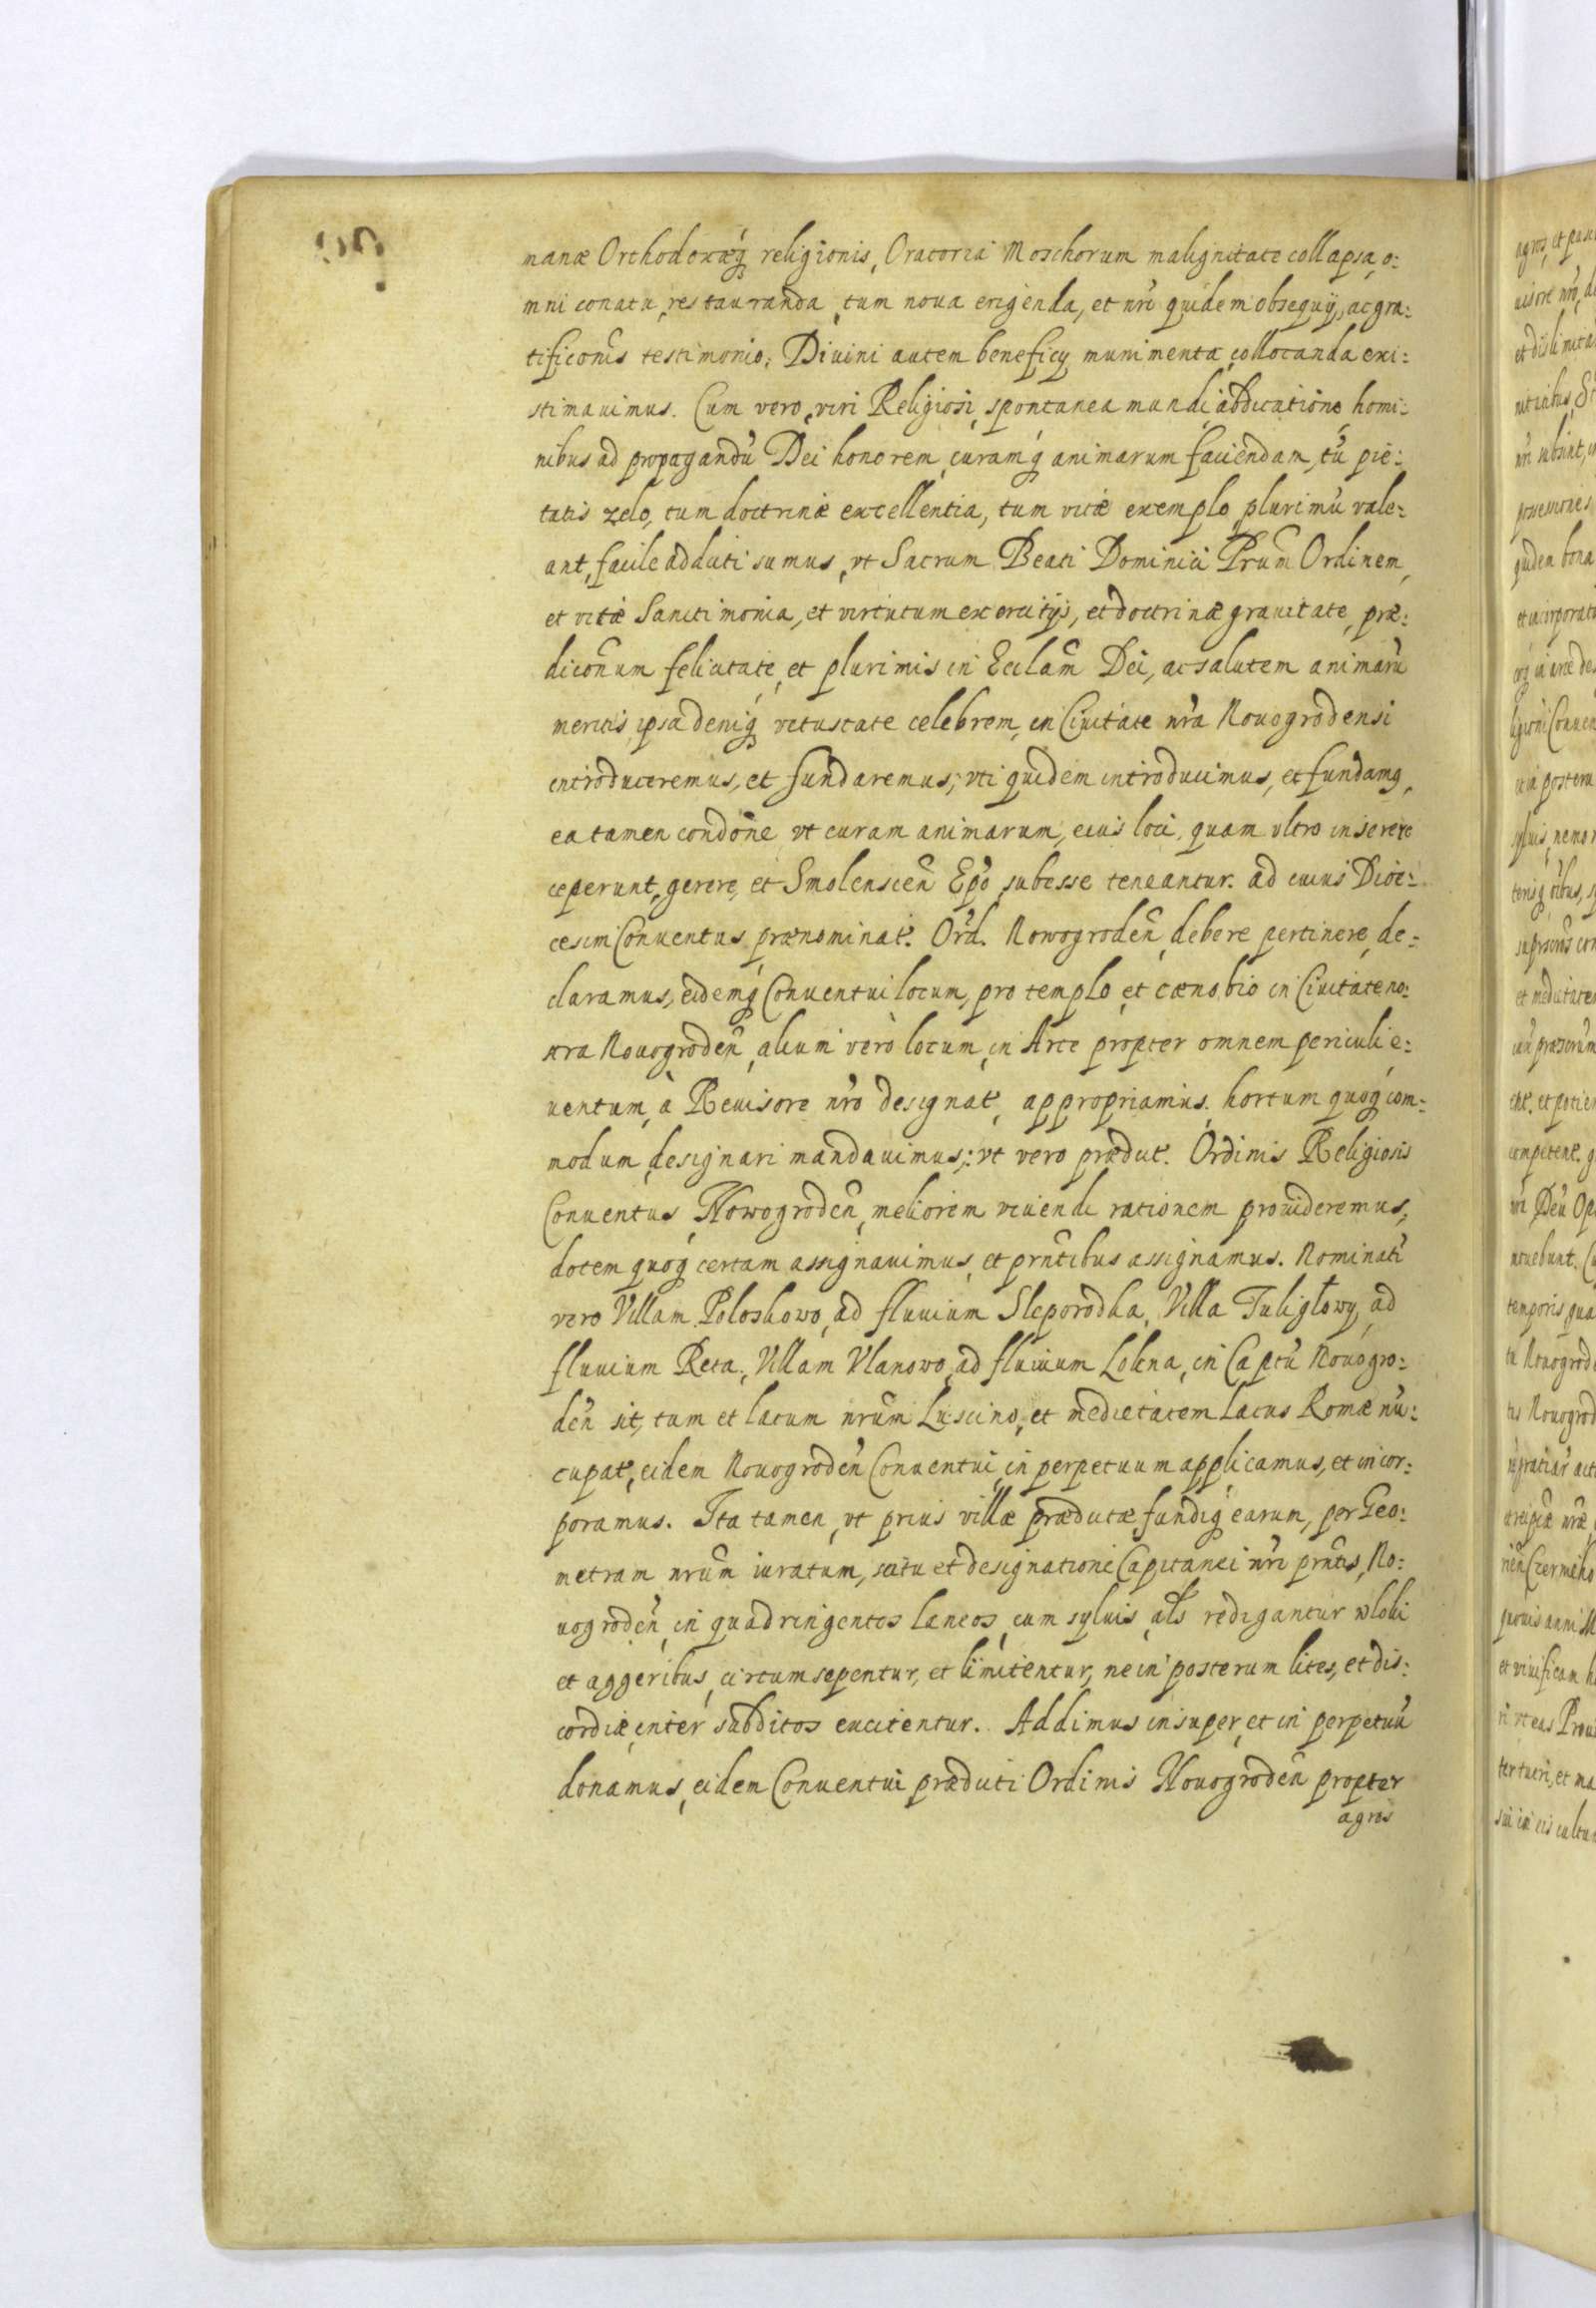 manæ Orthodoxæq́ religionis, Oratoria Moschorum malignitate collapsa, o:
mni conatu, restauranda, tum noua erigenda, et nr̃i quidem obsequij, ac gra:
tificoñis testimonio; Diuini autem beneficij munimenta, collocanda exi:
stimauimus. Cum vero, viri Religiosi, spontanea mundi abdicatione, homi:
nibus ad propagandũ Dei honorem, curamq́ animarum faciendam, tũ pie:
tatis zelo, tum doctrinæ excellentia, tum vitæ exemplo, plurimũ vale:
ant, facile adducti sumus, vt Sacrum Beati Dominici Prũm Ordinem,
et vitæ Sanctimonia, et virtutum exercitijs, et doctrinæ grauitate, præ:
dicoñum felicitate, et plurimis in Eccl̃am Dei, ac salutem animarũ
meritis, ipsa deniq́ vetustate celebrem, in Ciuitate nr̃a Nouogrodensi
introduceremus, et fundaremus; vti quidem introducimus, et fundamq,
ea tamen condoñe vt curam animarum, eius loci, quam vltro inserere
ceperunt, gerere, et Smolenscen̄ Ep̃o subesse teneantur. ad cuius Dioe:
cesim Conuentus prænominat̃. Ord̃. Nowogroden̄, debere pertinere, de:
claramus, eidemq́ Conuentui locum, pro templo, et cœnobio in Ciuitate no:
stra Nouogroden̄, alium verò locum, in Arce propter omnem periculi e:
uentum, à Reuisore nr̃o designat̃, appropriamus. hortum quoq́ com:
modum designari mandauimus; vt vero prædict̃. Ordinis Religiosis
Conuentus Nowogroden̄, meliorem viuendi rationem prouideremus,
dotem quoq́ certam assignauimus, et prñtibus assignamus. Nominatĩ
vero Villam Poloskowo, ad fluuium Sleporodka, Villa Tuligłowy, ad
fluuium Reta, Villam Vlanowo, ad fluuium Lokna, in Captũ Nouogro:
den̄ sit, tum et lacum nrũm Luscino, et medietatem lacus Romæ nũ:
cupat̃, eidem Nouogroden̄ Conuentui, in perpetuum applicamus, et incor:
poramus. Ita tamen, vt prius villæ prædictæ, fundiq́ earum, per Geo:
metram nrũm iuratum, scitu et designatione Capitanei nr̃i prñtis, No:
uogroden̄, in quadringentos laneos, cum syluis, al̃s redigantur wloki
et aggeribus, circumsepentur, et limitentur, ne in posterum lites, et dis:
cordiæ, inter subditos excitentur. Addimus insuper, et in perpetuũ
donamus, eidem Conuentui prædicti Ordinis Nouogroden̄ propter
agros